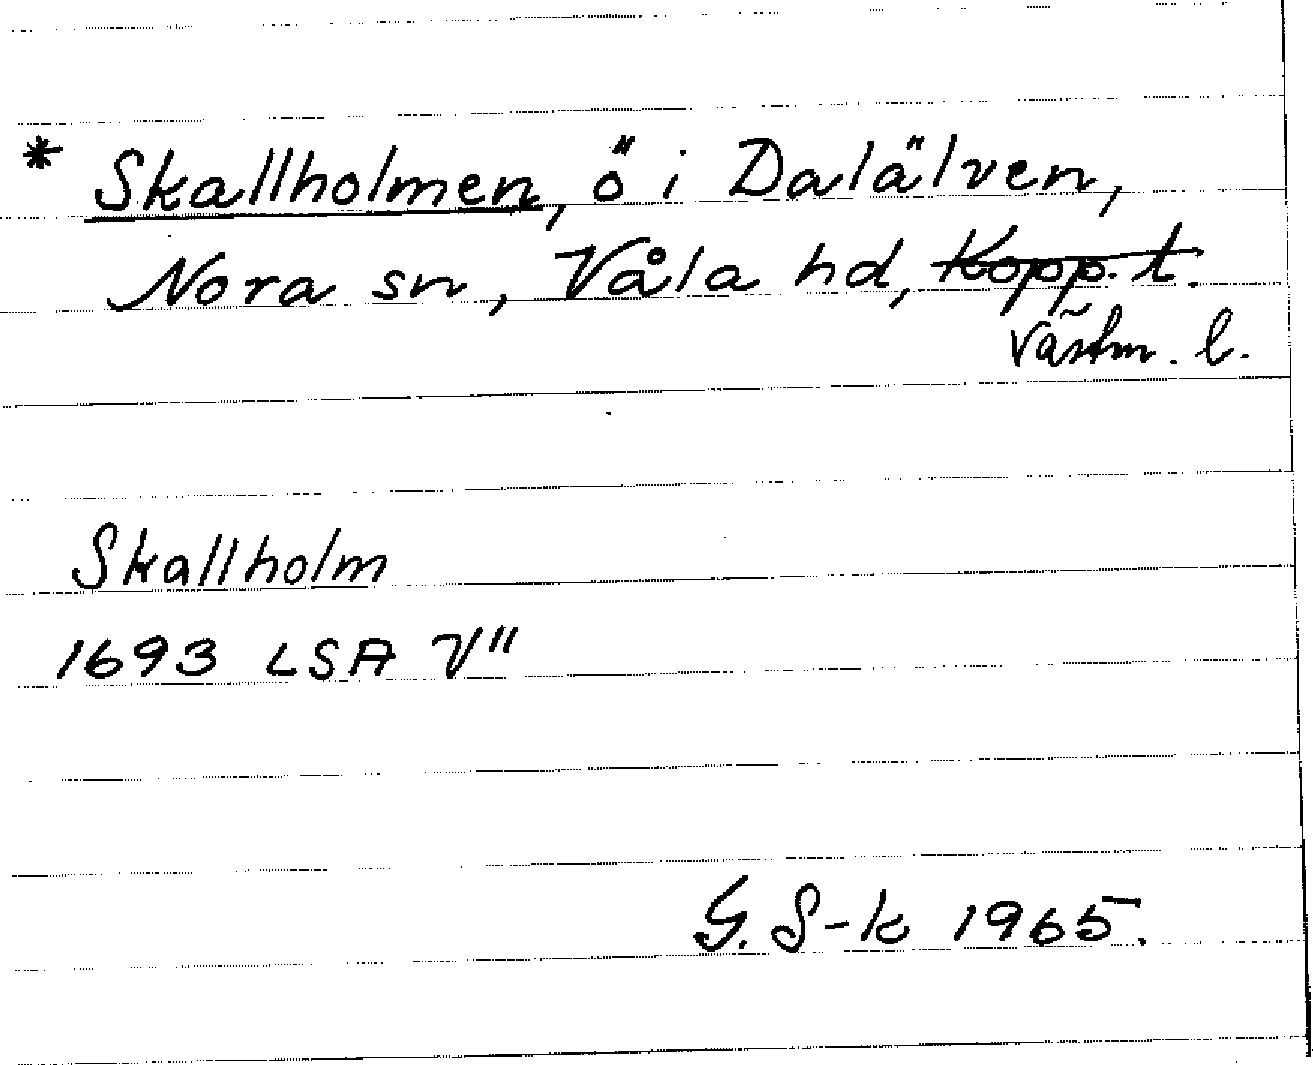 * Skallholmen, ö i Dalälven,
Nora sn, Våla hd, Kopp. l.
Västm. l.
Skallholm
1693 LSA V"
G. S-k 1965.